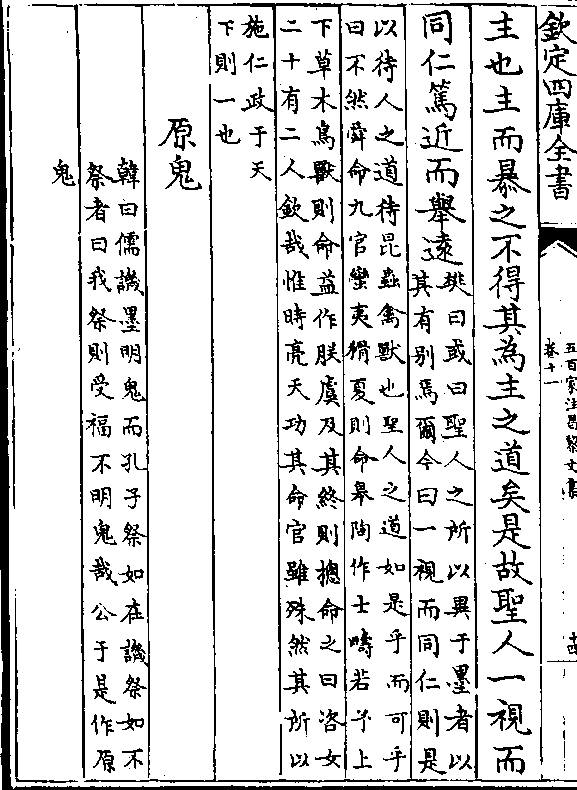 欽定四庫全書
五百家注昌黎文集
卷十一
主也主而暴之不得其為主之道矣是故聖人一視而
同仁篤近而舉遠
樊曰或曰聖人之所以異于墨者以
其有别焉爾今曰一視而同仁則是
以待人之道待昆蟲禽獸也聖人之道如是乎而可乎
曰不然舜命九官蠻夷猾夏則命臯陶作士疇若予上
下草木鳥獸則命益作朕虞及其終則摠命之曰咨女
二十有二人欽哉惟時亮天功其命官雖殊然其所以
施仁政于天
下則一也
原鬼
韓曰儒譏墨明鬼而孔子祭如在譏祭如不
祭者曰我祭則受福不明鬼哉公于是作原
鬼